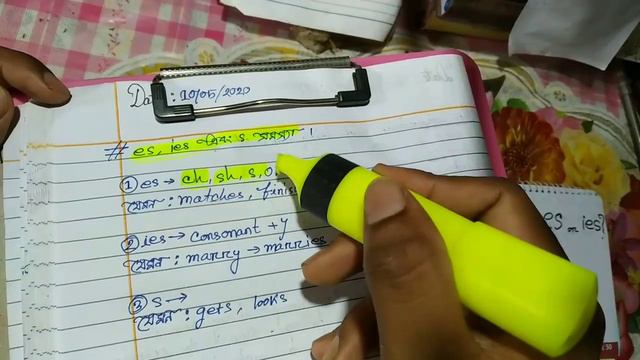 Date: 10/05/2020
# es, ies এবং s সমস্যা।
① es → ch, sh, s, o,
যেমন: matches, finis
② ies → consonant + y
যেমন: marry → marries
③ s →
যেমন: gets, looks
es or ies?